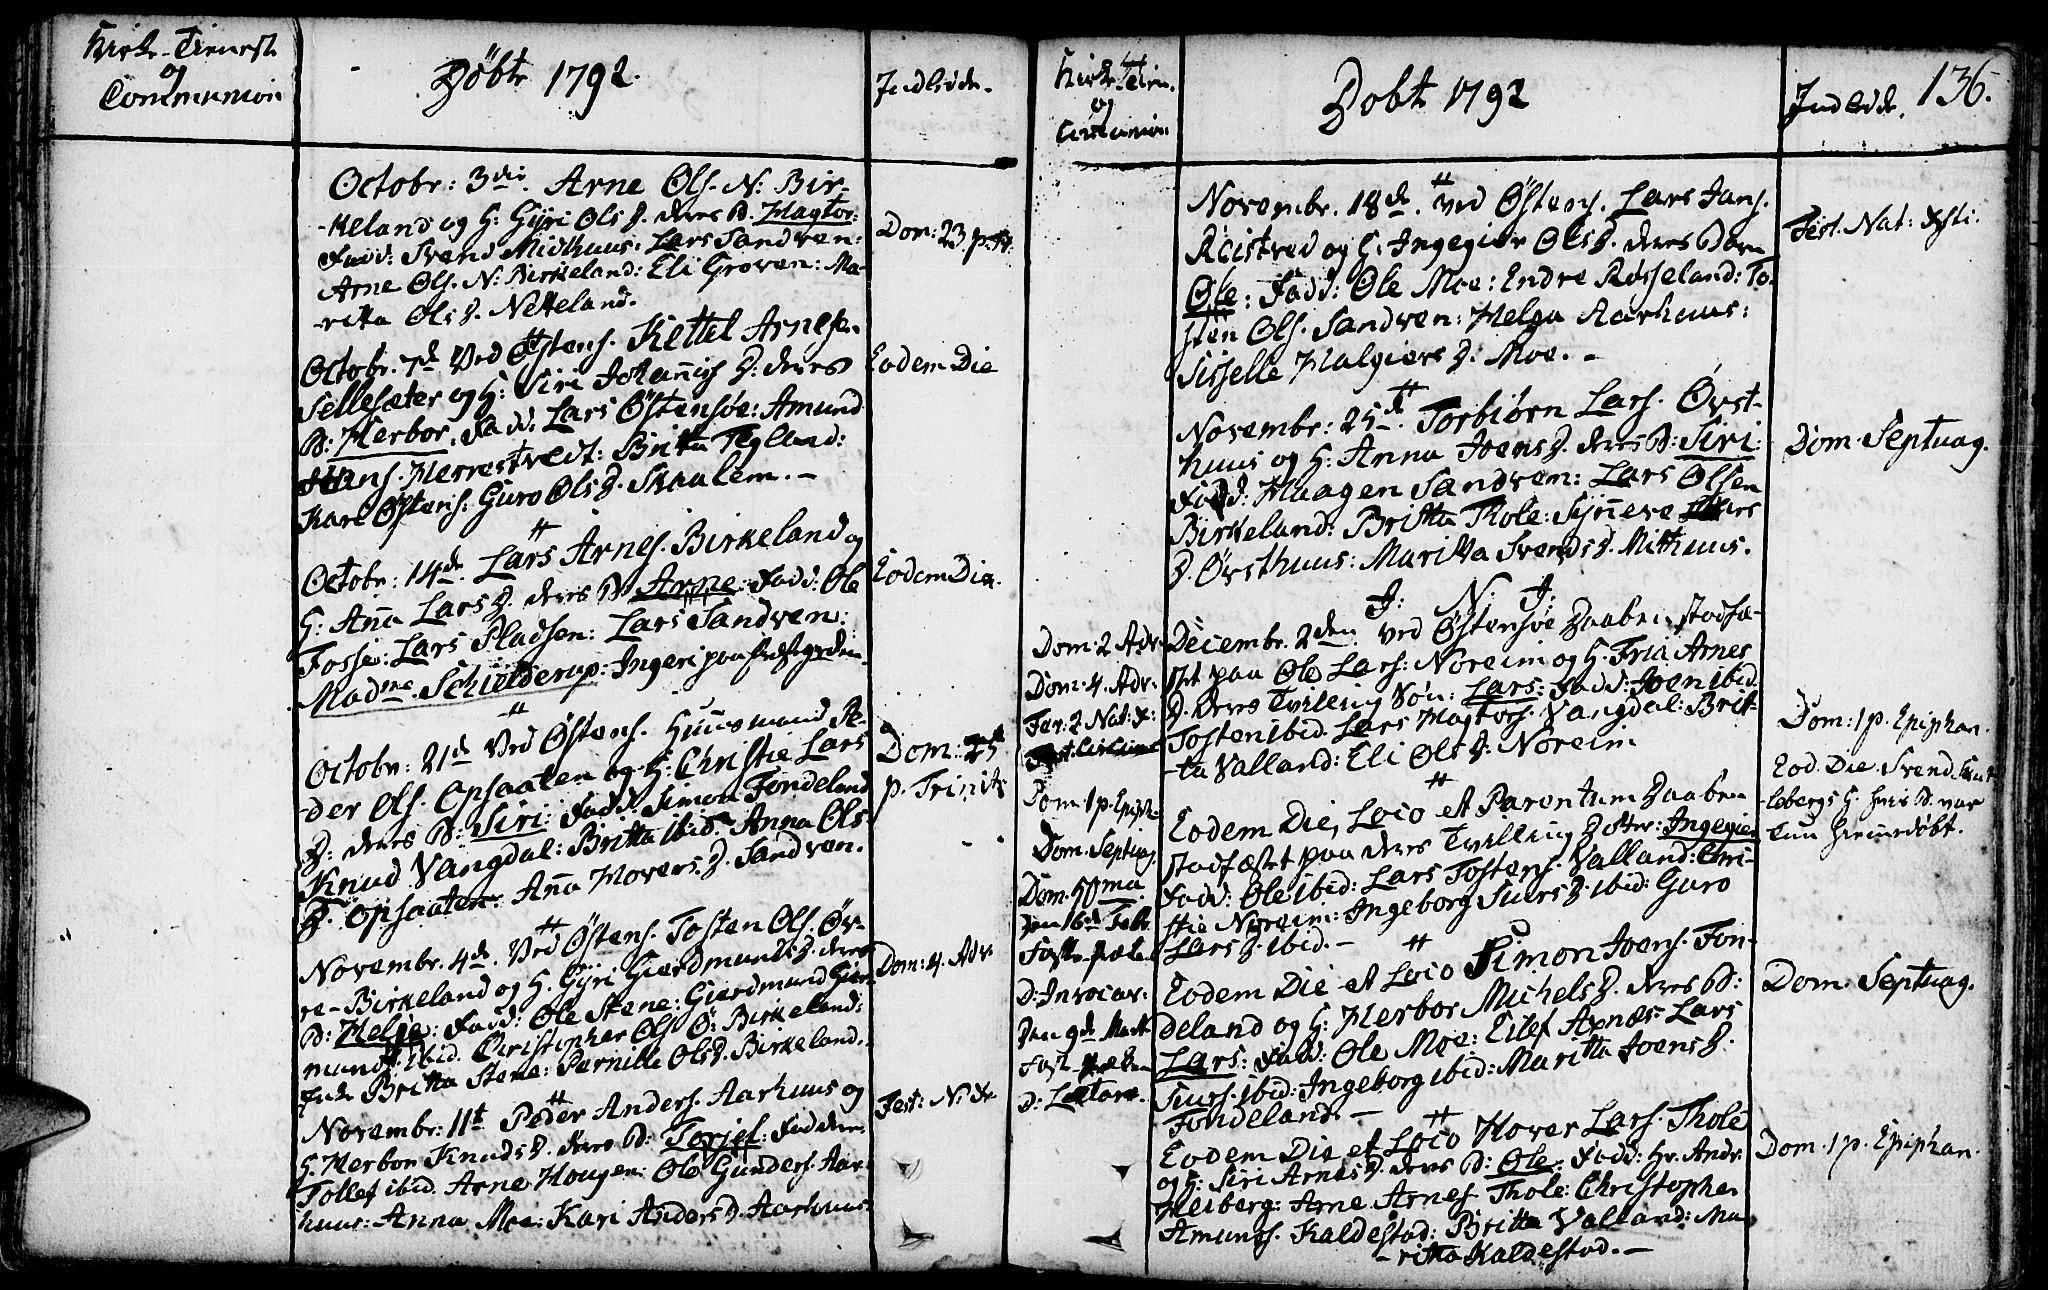 Kirke-Tienest
og
Communion
Döbte 1792.
Indledde.
Octobr: 3die. Arne Ols. N: Bir-
-keland og H: Gÿri Ols D. deres B. Magtor:
Fadd: Svend Midhuus: Lars Sandven:
Arne Ols. N: Birkeland: Eli Groven: Ma-
-ritta Ols D. Netteland.
Dom: 23 p. Tr.
Octobr. 7d. Ved Østens. Kettel Arnese.
Sellesæter og H: Siri Johanis D: deres
B: Herbor. Fadd: Lars Østensøe: Amund
Hans. Herrestvedt: Britta Tegland:
Kari Østens: Guro Ols D. Skaalem. -
Eodem Die
Octobr: 14de. Lars Arnes. Birkeland og
H: Ana Lars D. deres B Arne: Fadd: Ole
Fosse: Lars Pladsen: Lars Sandven:
Madme. Schielderup: Ingeri paa Præstegrden.
Eodem Die.
Octobr: 21d. Ved Østens. Huusmand Pe-
-der Ols. Opsaaten og H: Christie Lars
D: deres B: Siri: Fadd: Simon Fondeland
Knud Vangdal: Britta ibid: Anna Ols
D. Opsaaten: Ana Hovers D. Sandven.
Dom: 25
p. Trinit
Novembr. 4de. Ved Østens. Tosten Ols. Øv-
re-Birkeland og H. Gÿri Giermunds D. deres
B: Helje: Fadd: Ole Stene: Giermund Gier-
munds. ibid. Christopher Ols Ø: Birkeland:
Britta Stene: Pernille Ols D. Birkeland.
Dom: 4. Adv
Novembr: 11t Peder Anders. Aarhuus og
H. Herbor Knuds D. deres B: Torjef: Faddere.
Tollef ibid. Arne Hougen: Ole Gunders. Aar-
huus: Anna Moe: Kari Anders D. Aarhuus
Fest: N: Xr
Kirke-Tien.
og
Communion
Dobt 1792
Indledde.
136.
Novembr. 18d. ved Østens. Lars Jans.
Røistved og H: Ingegier Ols D. deres Barn
Ole: Fadd: Ole Moe: Endre Røsseland: To-
sten Ols. Sandven: Helga Aarhuus:
Sisselle Halgiers D: Moe. -
Fest. Nat: Xsti.
Novembr: 25d. Torbiørn Lars. Øvst-
huus og H: Anna Joens D. deres B: Siri:
Fadd: Haagen Sandven: Lars Olsen
Birkeland: Britta Thole: Sÿneve Lars
D. Øvsthuus: Maritta Svends D. Mithuus.
Dom. Septuag.
J: N: J:
Decembr. 2den ved Østensøe Daaben stadfæ-
stet paa Ole Lars: Noreim og H. Fria Arnes
D. deres Tvilling Søn: Lars: Fadd: Joen ibid.
Tosten ibid. Lars Magtors. Vangdal: Brit-
-ta Valland: Eli Ols D: Noreim
Dom: 1 p. Epiphan.
Eod. Die. Svend
-lebergs H. hvis B. var
hiemmedøbt.
Eodem Die, Loco et Parentum Daaben
stadfæstet paa deres Tvilling Dotter: Ingegier
Fadd: Ole ibid: Lars Tostens. Valland: Chri-
stie Noreim: Ingeborg Siurs D. ibid: Guro
Lars D. ibid. -
Eodem Die et Loco Simon Joens. Fon-
deland og H: Herbor Michels D. deres B:
Lars: Fadd: Ole Moe: Eilef Axnæs Lars
Siurs. ibid: Ingeborg ibid: Maritta Joens D.
Fondeland. -
Dom: Septuag.
Eodem Die et Loco Hover Lars. Thole
og H: Siri Arnes D. deres B: Ole. Fadd: Hr. Andr.
Heiberg: Arne Arnes Thole: Christopher
Amunds. Kaldestad: Britta Valland: Ma-
-ritta Kaldestad. -
Dom. 1 p. Epiphan.
Dom: 2 Adv
Dom: 4. Adv.
Fer: 2 Nat: X:
Dom. 1 p. Epiph
Dom. Septuag
Dom: 50ma
Den 16d Febr.
Faste-præke
D: Invocav.
Den 9d Mart
Fast-præken
D: Lætare.